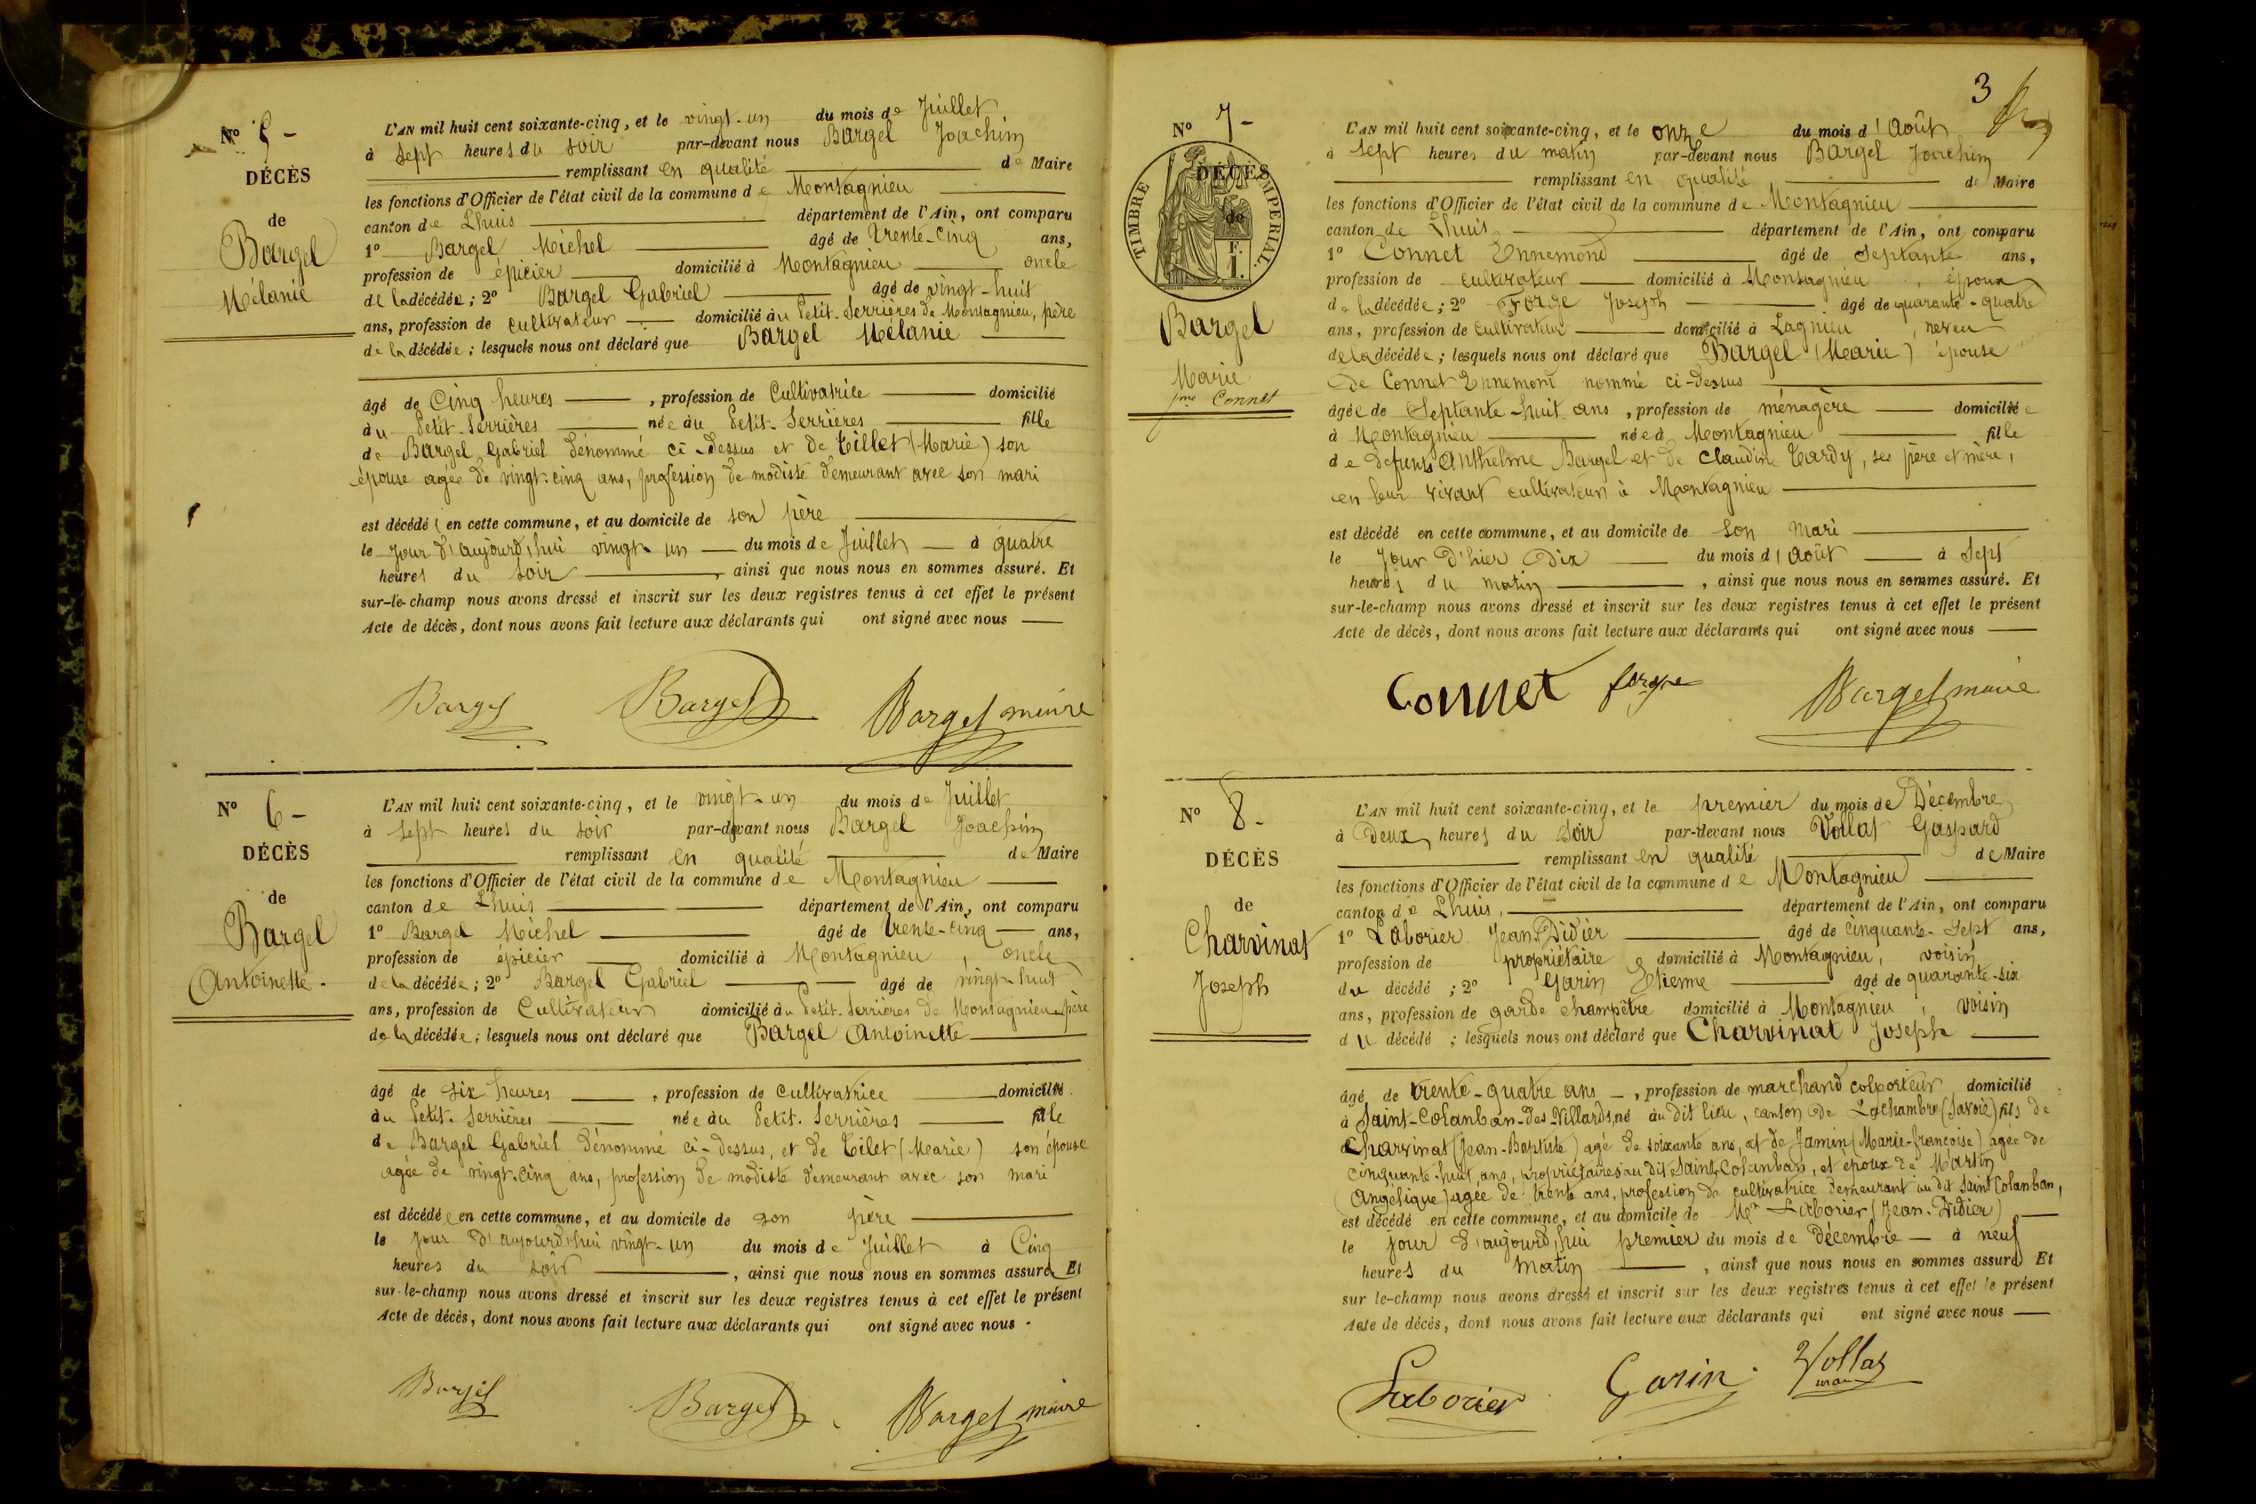 Nº 5 -
DÉCÈS
de
Bargel
Mélanie
L'AN mil huit cent soixante-cinq, et le vingt-un du mois de Juillet
à sept heures du soir par-devant nous Bargel Joachim
remplissant en qualité de Maire
les fonctions d'Officier de l'état civil de la commune de Montagnieu
canton de Lhuis département de l'Ain, ont comparu
1º Bargel Michel âgé de trente-cinq ans,
profession de épicier domicilié à Montagnieu oncle
de la décédée; 2º Bargel Gabriel âgé de vingt-huit
ans, profession de cultivateur domicilié au Petit-Serrières de Montagnieu, père
de la décédée; lesquels nous ont déclaré que Bargel Mélanie
âgé de Cinq heures, profession de Cultivatrice domicilié
au Petit-Serrières née au Petit-Serrières fille
de Bargel Gabriel dénommé ci-dessus et de Tillet (Marie) son
épouse agée de vingt-cinq ans, profession de modiste demeurant avec son mari
est décédée en cette commune, et au domicile de son père
le jour d'aujourd'hui vingt-un du mois de Juillet à quatre
heures du soir, ainsi que nous nous en sommes assuré. Et
sur-le-champ nous avons dressé et inscrit sur les deux registres tenus à cet effet le présent
Acte de décès, dont nous avons fait lecture aux déclarants qui ont signé avec nous
Bargel Bargel Bargel maire
Nº 6 -
DÉCÈS
de
Bargel
Antoinette.
L'AN mil huit cent soixante-cinq, et le vingt-un du mois de Juillet
à sept heures du soir par-devant nous Bargel Joachim
remplissant en qualité de Maire
les fonctions d'Officier de l'état civil de la commune de Montagnieu
canton de Lhuis département de l'Ain, ont comparu
1º Bargel Michel âgé de trente-cinq ans,
profession de épicier domicilié à Montagnieu, oncle
de la décédée; 2º Bargel Gabriel âgé de vingt-huit
ans, profession de Cultivateur domicilié au Petit-Serrières de Montagnieu père
de la décédée; lesquels nous ont déclaré que Bargel Antoinette
âgé de six heures, profession de cultivatrice domicilié
au Petit-Serrières née au Petit-Serrières fille
de Bargel Gabriel dénommé ci-dessus, et de Tilet (Marie) son épouse
agée de vingt-cinq ans, profession de modiste demeurant avec son mari
est décédée en cette commune, et au domicile de son père
le jour d'aujourd'hui vingt-un du mois de Juillet à Cinq
heures du soir, ainsi que nous nous en sommes assuré Et
sur-le-champ nous avons dressé et inscrit sur les deux registres tenus à cet effet le présent
Acte de décès, dont nous avons fait lecture aux déclarants qui ont signé avec nous.
Bargel Bargel Bargel maire
3
Nº 7 -
TIMBRE IMPERIAL.
DÉCÈS
de
F.
1.
Bargel
Marie
fme Connet
L'AN mil huit cent soixante-cinq, et le onze du mois d'Août
à sept heures du matin par-devant nous Bargel Joachim
remplissant en qualité de Maire
les fonctions d'Officier de l'état civil de la commune de Montagnieu
canton de Lhuis département de l'Ain, ont comparu
1º Connet Ennemond âgé de Septante ans,
profession de cultivateur domicilié à Montagnieu, époux
de la décédée; 2º Forge Joseph âgé de quarante-quatre
ans, profession de cultivateur domicilié à Lagnieu, neveu
de la décédée; lesquels nous ont déclaré que Bargel (Marie) épouse
de Connet Ennemond nommé ci-dessus
âgée de Septante-huit ans, profession de ménagère domiciliée
à Montagnieu née à Montagnieu fille
de defunts Anthelme Bargel et de Claudine Tardy, ses père et mère,
en leur vivant cultivateurs à Montagnieu
est décédé en cette commune, et au domicile de son mari
le jour d'hier Dix du mois d'Août à Sept
heures du matin, ainsi que nous nous en sommes assuré. Et
sur-le-champ nous avons dressé et inscrit sur les deux registres tenus à cet effet le présent
Acte de décès, dont nous avons fait lecture aux déclarants qui ont signé avec nous
Connet forge Bargel maire
Nº 8 -
DÉCÈS
de
Charvinat
Joseph
L'AN mil huit cent soixante-cinq, et le premier du mois de Décembre
à Deux heures du soir par-devant nous Vollat Gaspard
remplissant en qualité de Maire
les fonctions d'Officier de l'état civil de la commune de Montagnieu
canton de Lhuis, département de l'Ain, ont comparu
1º Laborier Jean-Didier âgé de cinquante-sept ans,
profession de propriétaire domicilié à Montagnieu, voisin
du décédé; 2º Garin Etienne âgé de quarante-six
ans, profession de garde champêtre domicilié à Montagnieu, voisin
du décédé; lesquels nous ont déclaré que Charvinat Joseph
âgé de trente-quatre ans, profession de marchand colporteur domicilié
à Saint-Colanban-des-Villards, né au dit lieu, canton de Lachambre (Savoie) fils de
Charvinat (Jean-Baptiste) agé de soixante ans, et de Jamin (Marie-françoise) agée de
cinquante-huit ans, propriétaires au dit Saint Colanban, et époux de Martin
(Angélique) agée de trente ans, profession de cultivatrice demeurant au dit Saint Colanban,
est décédé en cette commune, et au domicile de Mr Laborier (Jean-Didier)
le jour d'aujourd'hui premier du mois de Décembre à neuf
heures du matin, ainsi que nous nous en sommes assuré Et
sur le-champ nous avons dressé et inscrit sur les deux registres tenus à cet effet le présent
Acte de décès, dont nous avons fait lecture aux déclarants qui ont signé avec nous
Laborier Garin Vollat